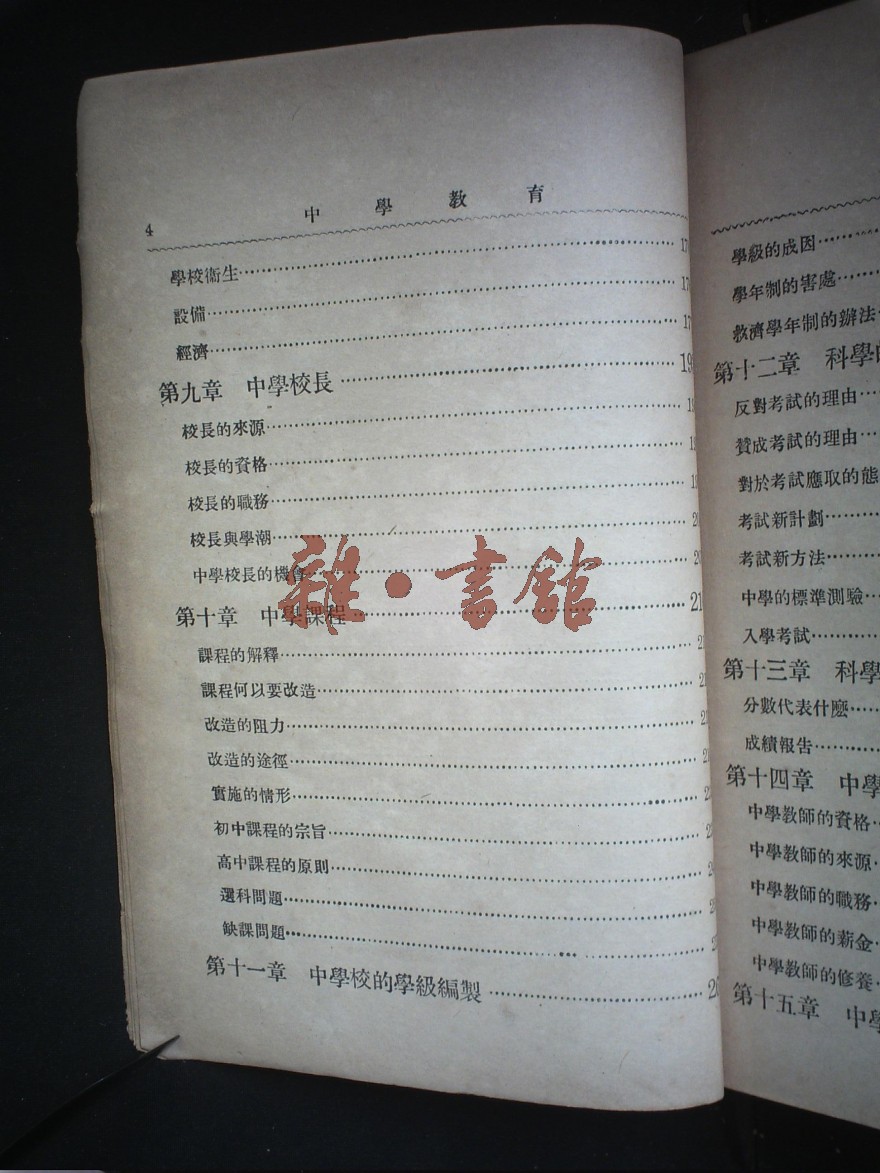 4
中學教育
學校衞生
設備
經濟
第九章 中學校長
校長的來源
校長的資格
校長的職務
校長與學潮
中學校長的機會
第十章 中學課程
課程的解釋
課程何以要改造
改造的阻力
改造的途徑
實施的情形
初中課程的宗旨
高中課程的原則
選科問題
缺課問題
第十一章 中學校的學級編製
雜·書館
學級的成因
學年制的害處
救濟學年制的辦法
第十二章 科學
反對考試的理由
贊成考試的理由
對於考試應取的態
考試新計劃
考試新方法
中學的標準測驗
入學考試
第十三章 科學
分數代表什麽
成績報告
第十四章 中學
中學教師的資格
中學教師的來源
中學教師的職務
中學教師的薪金
中學教師的修養
第十五章 中學